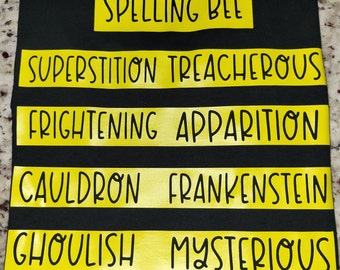 SPELLING BEE
SUPERSTITION TREACHEROUS
FRIGHTENING APPARITION
CAULDRON FRANKENSTEIN
GHOULISH MYSTERIOUS